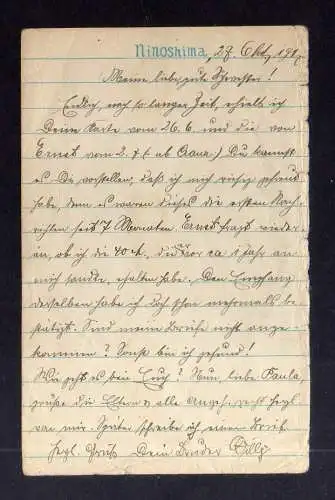 Ninoshima, 27. Okt. 191
Meine liebe, gute Schwester!
Endlich, nach so langer Zeit, erhielt ich
Deine Karte vom 26.6. und die von
Ernst vom 2. ab Du kannst
Dir vorstellen, daß ich mich riesig gefreut
habe, denn es waren dieses die ersten Nach-
richten seit 7 Monaten. Ernst fragt wieder
an, ob ich die 40 M. die Vor ca 1 Jahr an
mich sandte, erhalten habe. Den Empfang
derselben habe ich doch schon mehrmals be-
stätigt. Sind meine Briefe nicht ange-
kommen? Sonst bin ich gesund!
Wie geht es bei Euch? Nun, liebe Paula,
grüße die Eltern u. alle Angeh. recht herzl.
von mir. Später schreibe ich einen Brief.
Herzl. Gruß Dein Bruder Willy